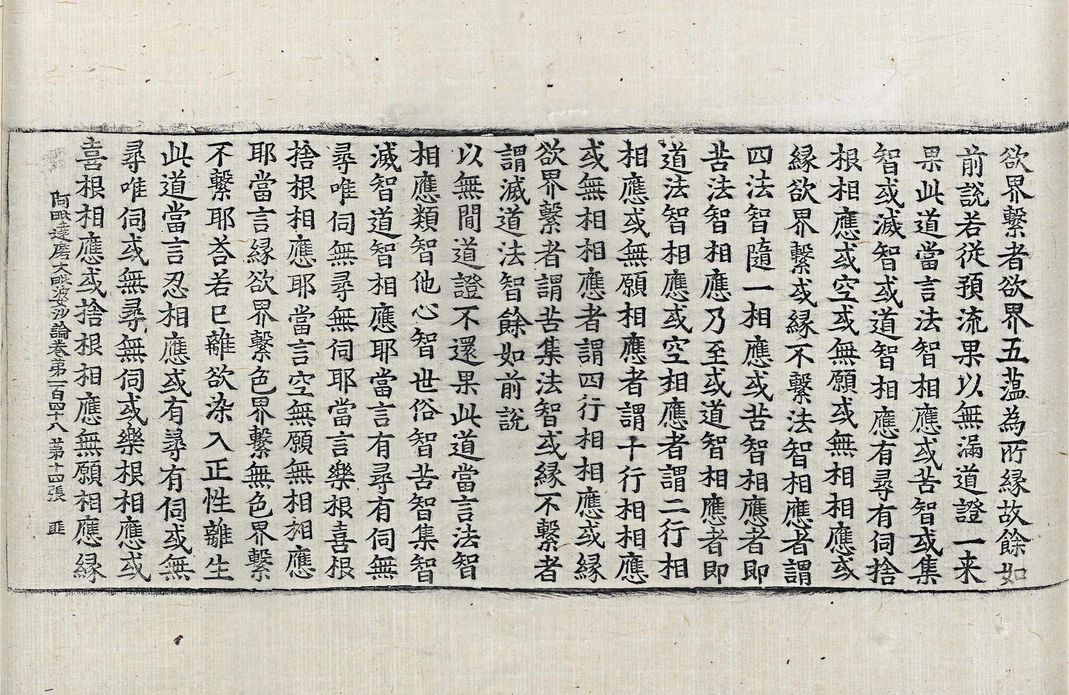 欲界繫者欲界五薀為所縁故餘如
前說若從預流果以無漏道證一来
果此道當言法智相應或苦智或集
智或滅智或道智相應有尋有伺捨
根相應或空或無願或無相相應或
縁欲界繫或縁不繫法智相應者謂
四法智隨一相應或苦智相應者即
苦法智相應乃至或道智相應者即
道法智相應或空相應者謂二行相
相應或無願相應者謂十行相相應
或無相相應者謂四行相相應或縁
欲界繫者謂苦集法智或縁不繫者
謂滅道法智餘如前說
以無間道證不還果此道當言法智
相應類智他心智世俗智苦智集智
滅智道智相應耶當言有尋有伺無
尋唯伺無尋無伺耶當言樂根喜根
捨根相應耶當言空無願無相相應
耶當言縁欲界繫色界繫無色界繫
不繫耶荅若已離欲染入正性離生
此道當言忍相應或有尋有伺或無
尋唯伺或無尋無伺或樂根相應或
喜根相應或捨根相應無願相應縁
阿毗達磨大毗婆沙論卷第一百四十八 第十四張 匪